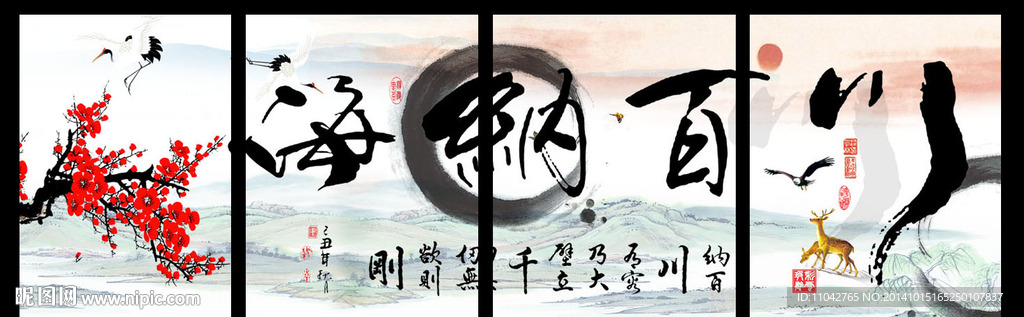 海納百川
納百
川
有容
乃大
壁立
千
仞無
欲則
剛
己丑年秋月
昵图网 www.nipic.com
ID:11042765 NO:20141015165250107837